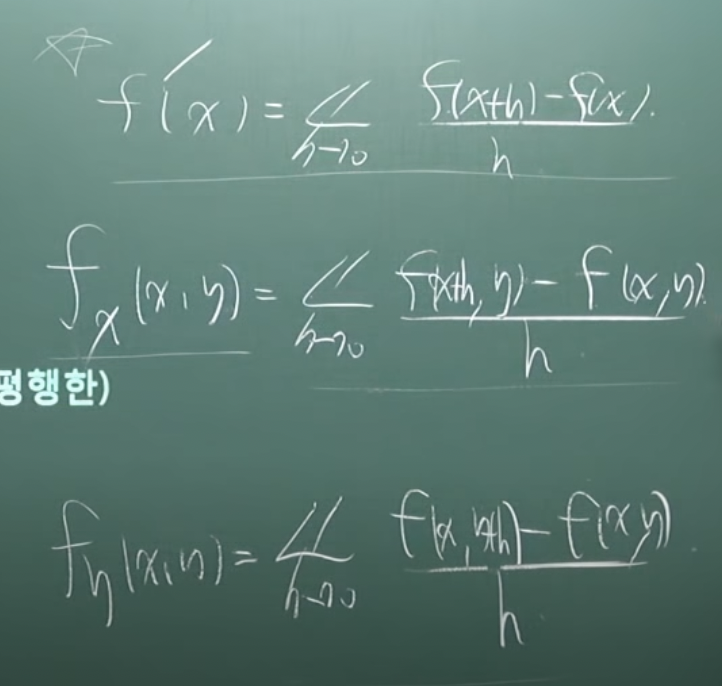 f'(x) = lim h→0 f(x+h) - f(x) / h
f_x(x, y) = lim h→0 f(x+h, y) - f(x, y) / h
평행한)
f_y(x, y) = lim h→0 f(x, y+h) - f(x, y) / h